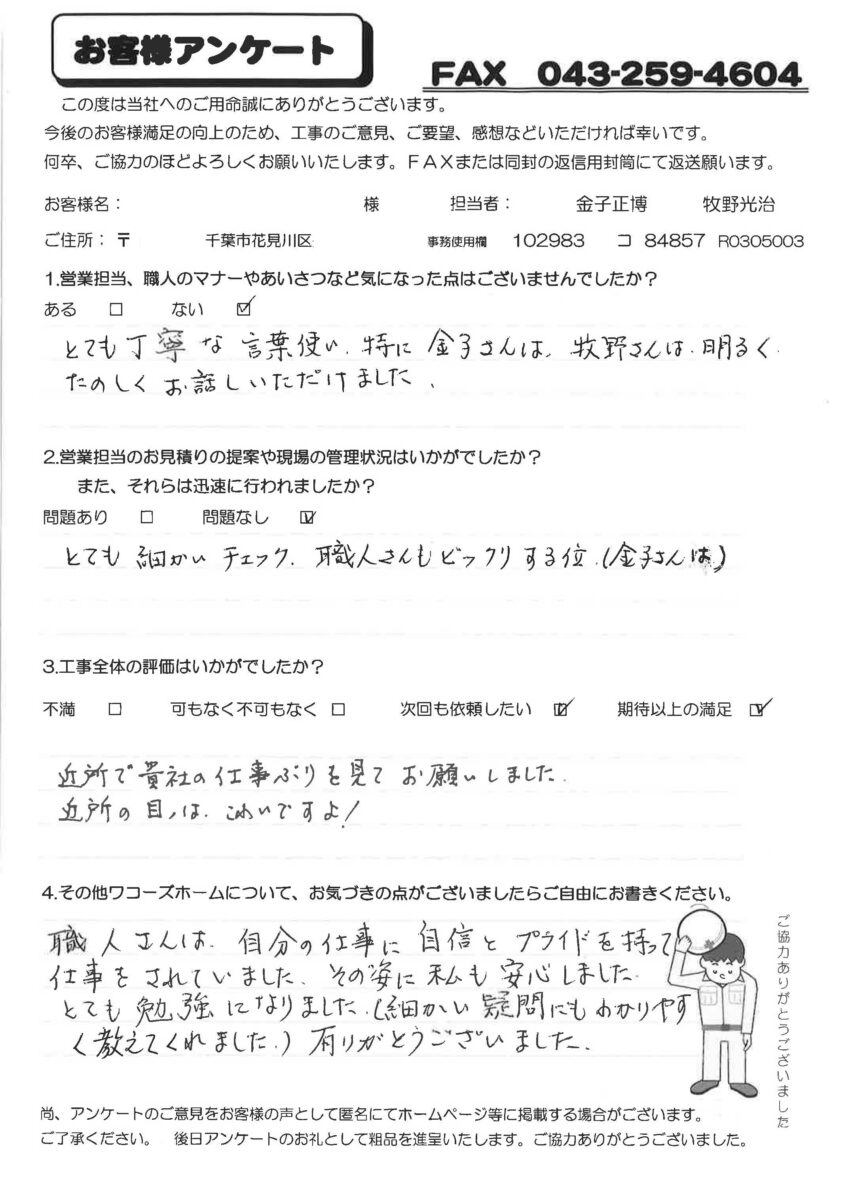 お客様アンケート
FAX 043-259-4604
この度は当社へのご用命誠にありがとうございます。
今後のお客様満足の向上のため、工事のご意見、ご要望、感想などいただければ幸いです。
何卒、ご協力のほどよろしくお願いいたします。ＦＡＸまたは同封の返信用封筒にて返送願います。
お客様名： 様 担当者： 金子正博 牧野光治
ご住所：〒 千葉市花見川区 事務使用欄 102983 コ 84857 R0305003
1.営業担当、職人のマナーやあいさつなど気になった点はございませんでしたか？
ある □ ない ☑
とても丁寧な言葉使い、特に金子さんは、牧野さんは、明るく
たのしくお話しいただけました、
2.営業担当のお見積りの提案や現場の管理状況はいかがでしたか？
また、それらは迅速に行われましたか？
問題あり □ 問題なし ☑
とても細かいチェック、職人さんもビックリする位、(金子さんは)
3.工事全体の評価はいかがでしたか？
不満 □ 可もなく不可もなく □ 次回も依頼したい ☑ 期待以上の満足 ☑
近所で貴社の仕事ぶりを見てお願いしました、
近所の目は、こわいですよ！
4.その他ワコーズホームについて、お気づきの点がございましたらご自由にお書きください。
職人さんは、自分の仕事に自信とプライドを持って
仕事をされていました、その姿に私も安心しました、
とても勉強になりました、(細かい疑問にもわかりやす
く教えてくれました、) 有りがとうございました、
ご協力ありがとうございました
尚、アンケートのご意見をお客様の声として匿名にてホームページ等に掲載する場合がございます。
ご了承ください。 後日アンケートのお礼として粗品を進呈いたします。ご協力ありがとうございました。